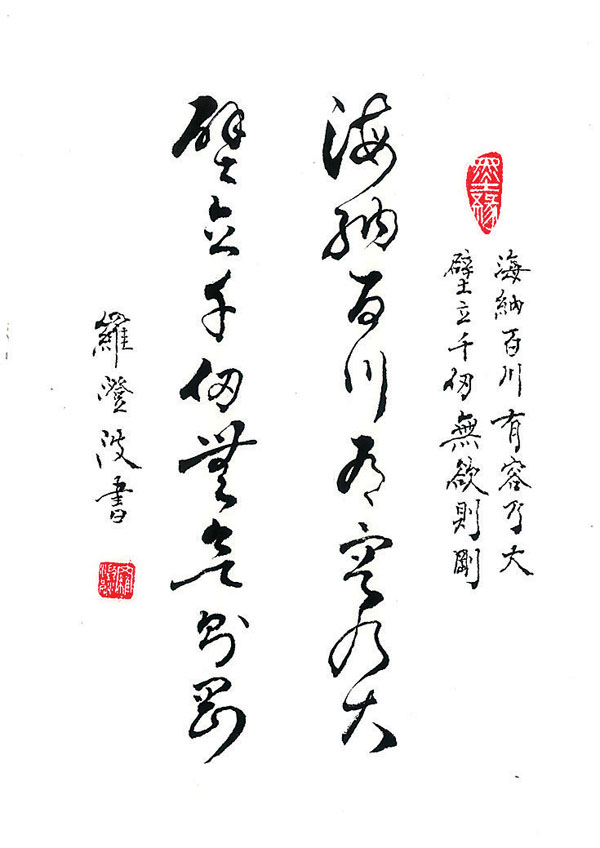 墨緣
海納百川有容乃大
壁立千仞無欲則剛
海納百川有容乃大
壁立千仞無欲則剛
羅澄波書